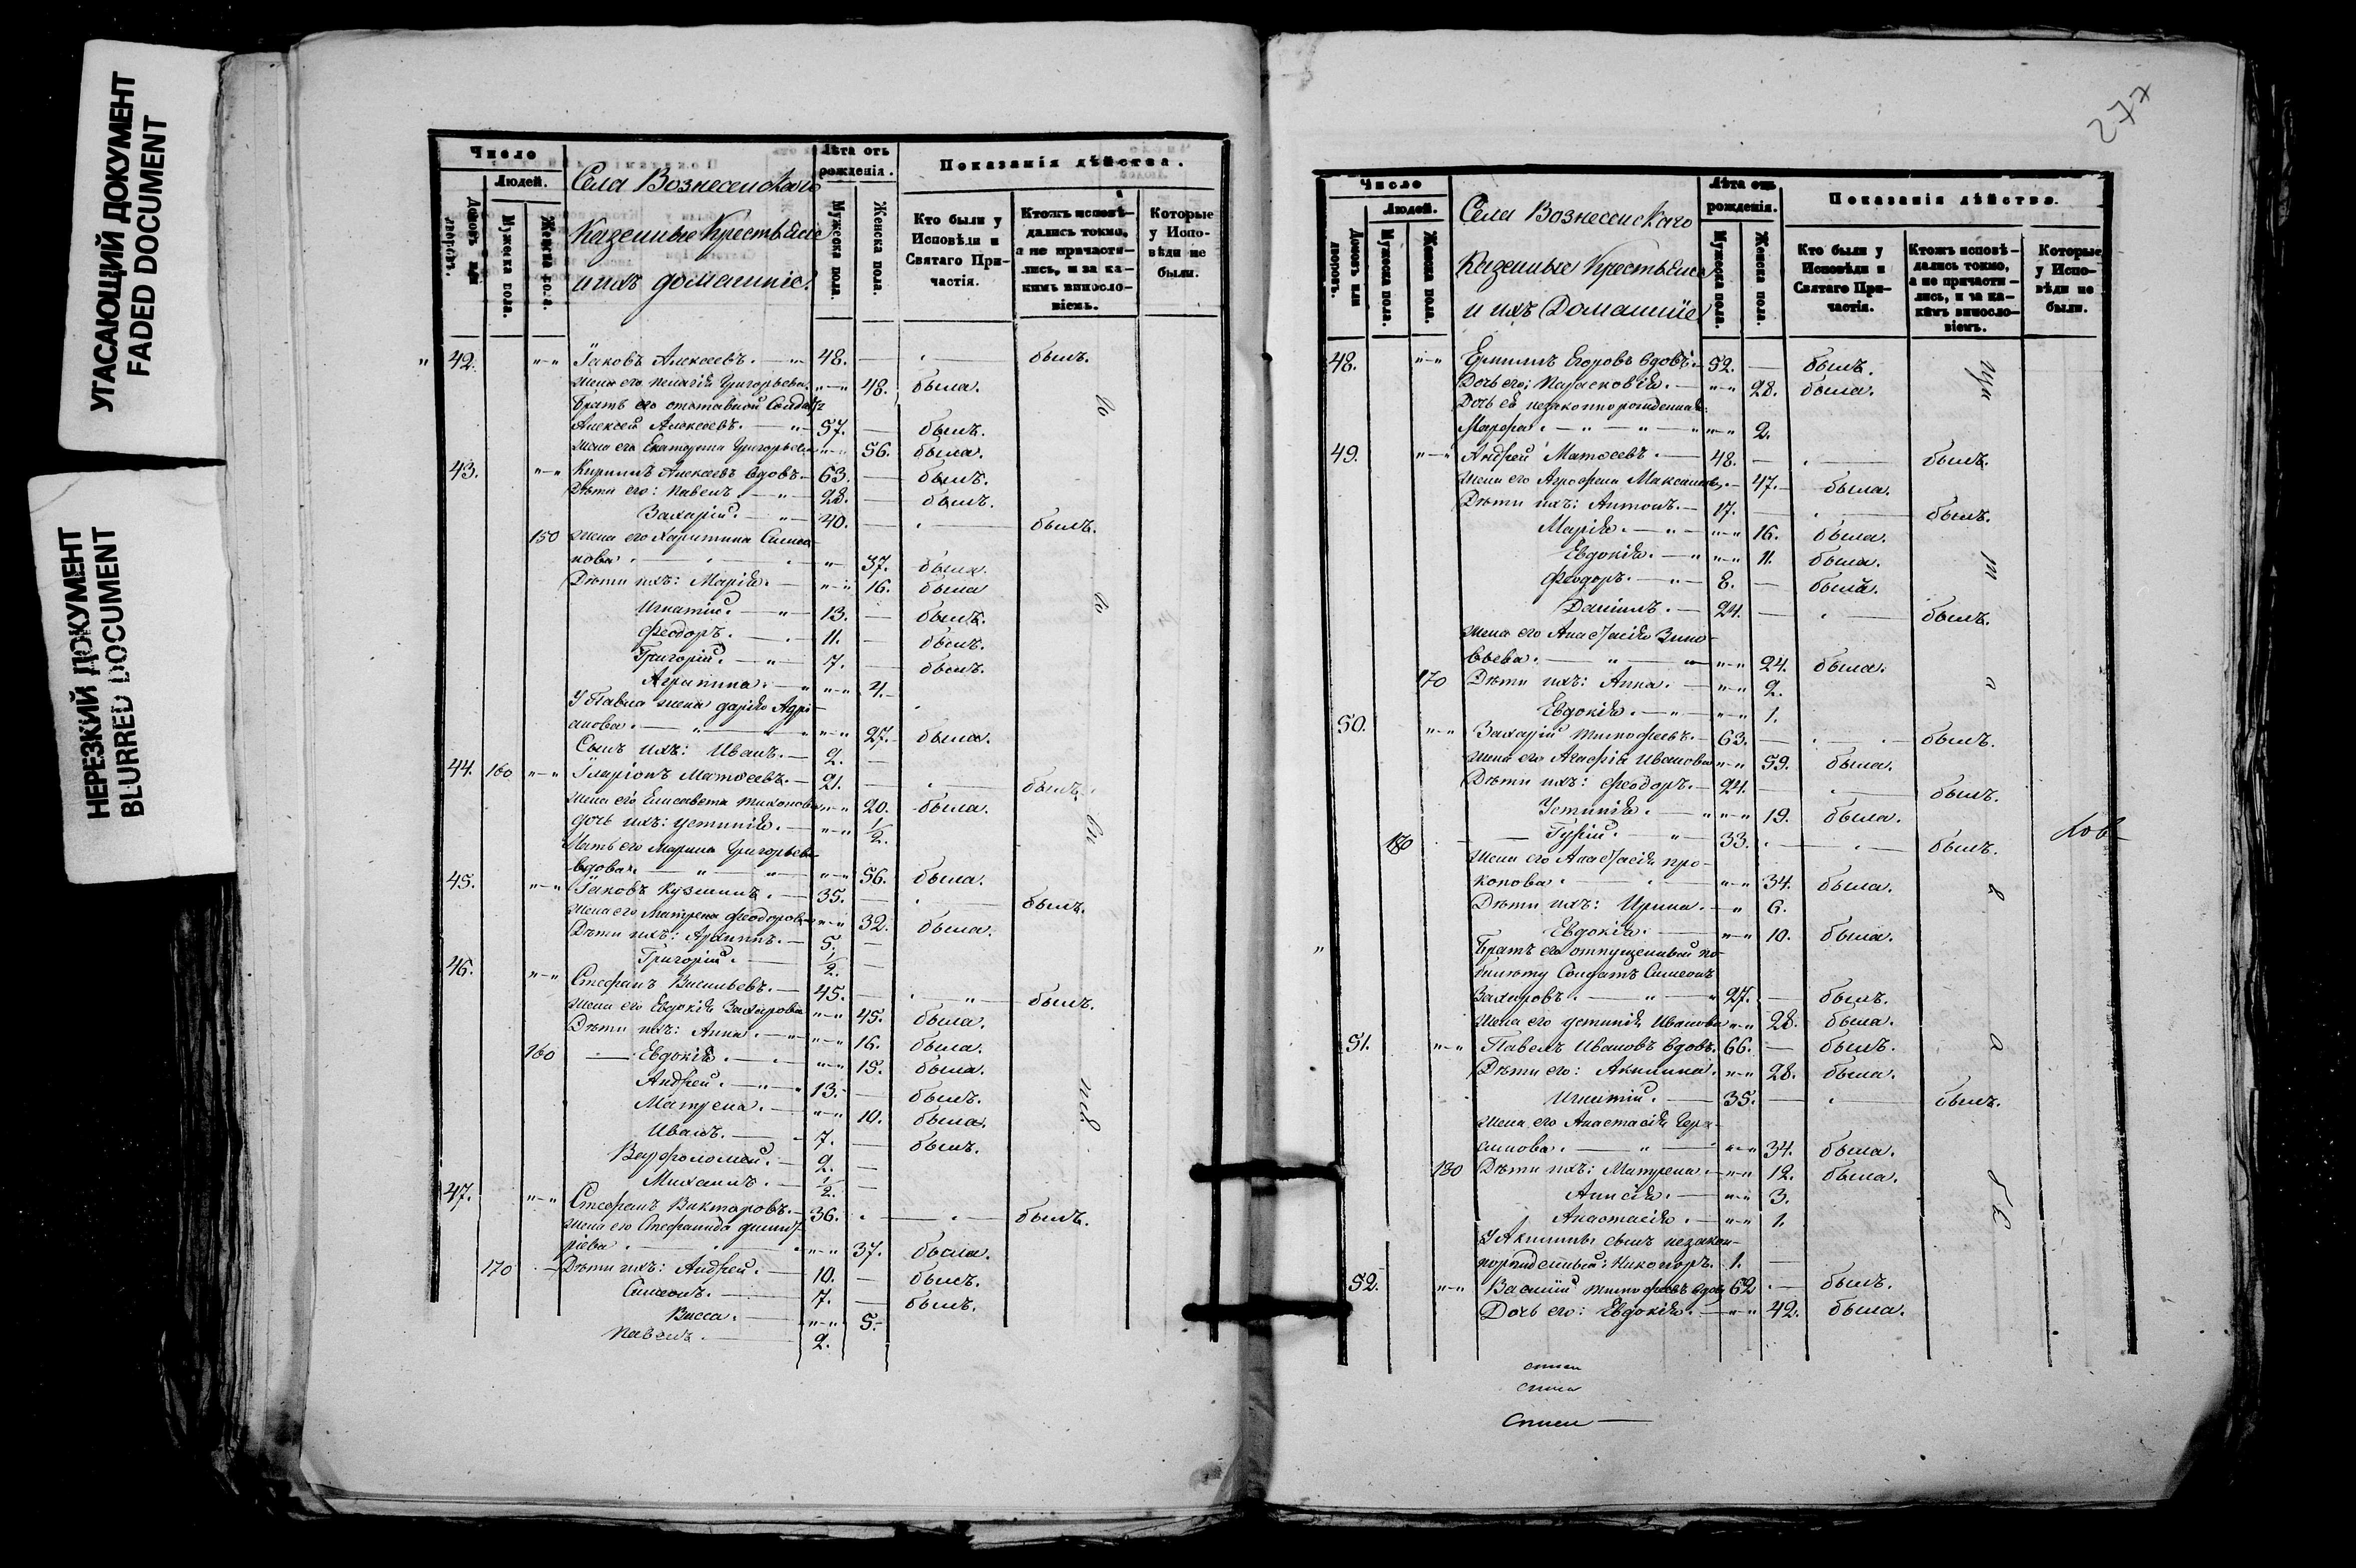 УГАСАЮЩИЙ ДОКУМЕНТ
FADED DOCUMENT
НЕРЕЗКИЙ ДОКУМЕНТ
BLURRED DOCUMENT
Число
Людей.
Домовъ или дворовъ.
Мужеска пола.
Женска пола.
Села Вознесенскаго
Казенные Крестьяне
и ихъ домашніе.
Лѣта отъ рожденія.
Мужеска пола.
Женска пола.
Показанія дѣйства.
Кто были у Исповѣди и Святаго Причастія.
Ктожъ исповѣдались токмо, а не причастились, и за какимъ винословіемъ.
Которые у Исповѣди не были.
42. Іаковъ Алексеевъ. 48. былъ.
жена его Пелагія Григорьева. 48. была.
Братъ его отставной Солдатъ
Алексей Алексеевъ. 57. былъ.
жена его Екатерина Григорьева 56. была.
43. Кирилъ Алексеевъ вдовъ. 63. былъ.
Дѣти его: Павелъ. 28. былъ.
Захарій. 40. былъ.
150 жена его Харитина Симео-
нова. 37. была.
Дѣти ихъ: Марія. 16. была
Игнатій. 13. былъ.
Феодоръ. 11. былъ.
Григорій. 7. былъ.
Агрипина. 4.
У Павла жена Дарія Адрі-
анова. 27. была.
Сынъ ихъ: Иванъ. 2.
44. 160 Іларіонъ Матѳеевъ. 21. былъ.
жена его Елисавета Тихонова 20. была.
дочь ихъ: Устинія. 1/2.
Мать его Марина Григорьева
вдова. 56. была.
45. Іаковъ Кузминъ. 35. былъ.
жена его Матрена Феодорова 32. была.
Дѣти ихъ: Архипъ. 5.
Григорій. 1/2.
46. Стефанъ Васильевъ. 45. былъ.
жена его Евдокія Захарова 45. была.
Дѣти ихъ: Анна. 16. была.
160 Евдокія. 15. была.
Андрей. 13. былъ.
Матрена. 10. была.
Иванъ. 7. былъ.
Варфоломей. 2.
Михаилъ. 1/2.
47. Стефанъ Викторовъ. 36. былъ.
жена его Стефанида Димит-
ріева. 37. была.
170 Дѣти ихъ: Андрей. 10. былъ.
Симеонъ. 7. былъ.
Васса. 5.
Павелъ. 2.
277
Число
Людей.
Домовъ или дворовъ.
Мужеска пола.
Женска пола.
Села Вознесенскаго
Казенные Крестьяне
и ихъ Домашніе
Лѣта отъ рожденія.
Мужеска пола.
Женска пола.
Показанія дѣйства.
Кто были у Исповѣди и Святаго Причастія.
Ктожъ исповѣдались токмо, а не причастились, и за какимъ винословіемъ.
Которые у Исповѣди не были.
48. Ермилъ Егоровъ вдовъ. 52. былъ.
Дочь его: Парасковія. 28. была.
Дочь её незаконнорожденная:
Марфа. 2.
49. Андрей Матѳеевъ. 48. былъ.
жена его Агрофена Максимов. 47. была.
Дѣти ихъ: Антонъ. 17. былъ.
Марія. 16. была.
Евдокія. 11. была.
Феодоръ. 8. былъ.
Даніилъ. 24. былъ.
жена его Анастасія Зино-
вьева. 24. была.
170 Дѣти ихъ: Анна. 2.
Евдокія. 1.
50. Захарій Тимофеевъ. 63. былъ.
жена его Агафія Иванова 59. была.
Дѣти ихъ: Феодоръ. 24. былъ.
Устинія. 19. была.
180 Гурій. 33. былъ.
жена его Анастасія Про-
копова. 34. была.
Дѣти ихъ: Ирина. 6.
Евдокія. 10. была.
Братъ его отпущенный по
билету Солдатъ Симеонъ
Захаровъ. 27. былъ.
жена его Устинія Иванова 28. была.
51. Павелъ Ивановъ вдовъ. 66. былъ.
Дѣти его: Акилина. 28. была.
Игнатій. 35. былъ.
жена его Анастасія Гера-
симова. 34. была.
180 Дѣти ихъ: Матрена. 12. была.
Анисія. 3.
Анастасія. 1.
У Акилины сынъ незакон-
норожденный: Никоноръ. 1.
52. Василій Тимофеевъ вдовъ 62. былъ.
Дочь его: Евдокія. 42. была.